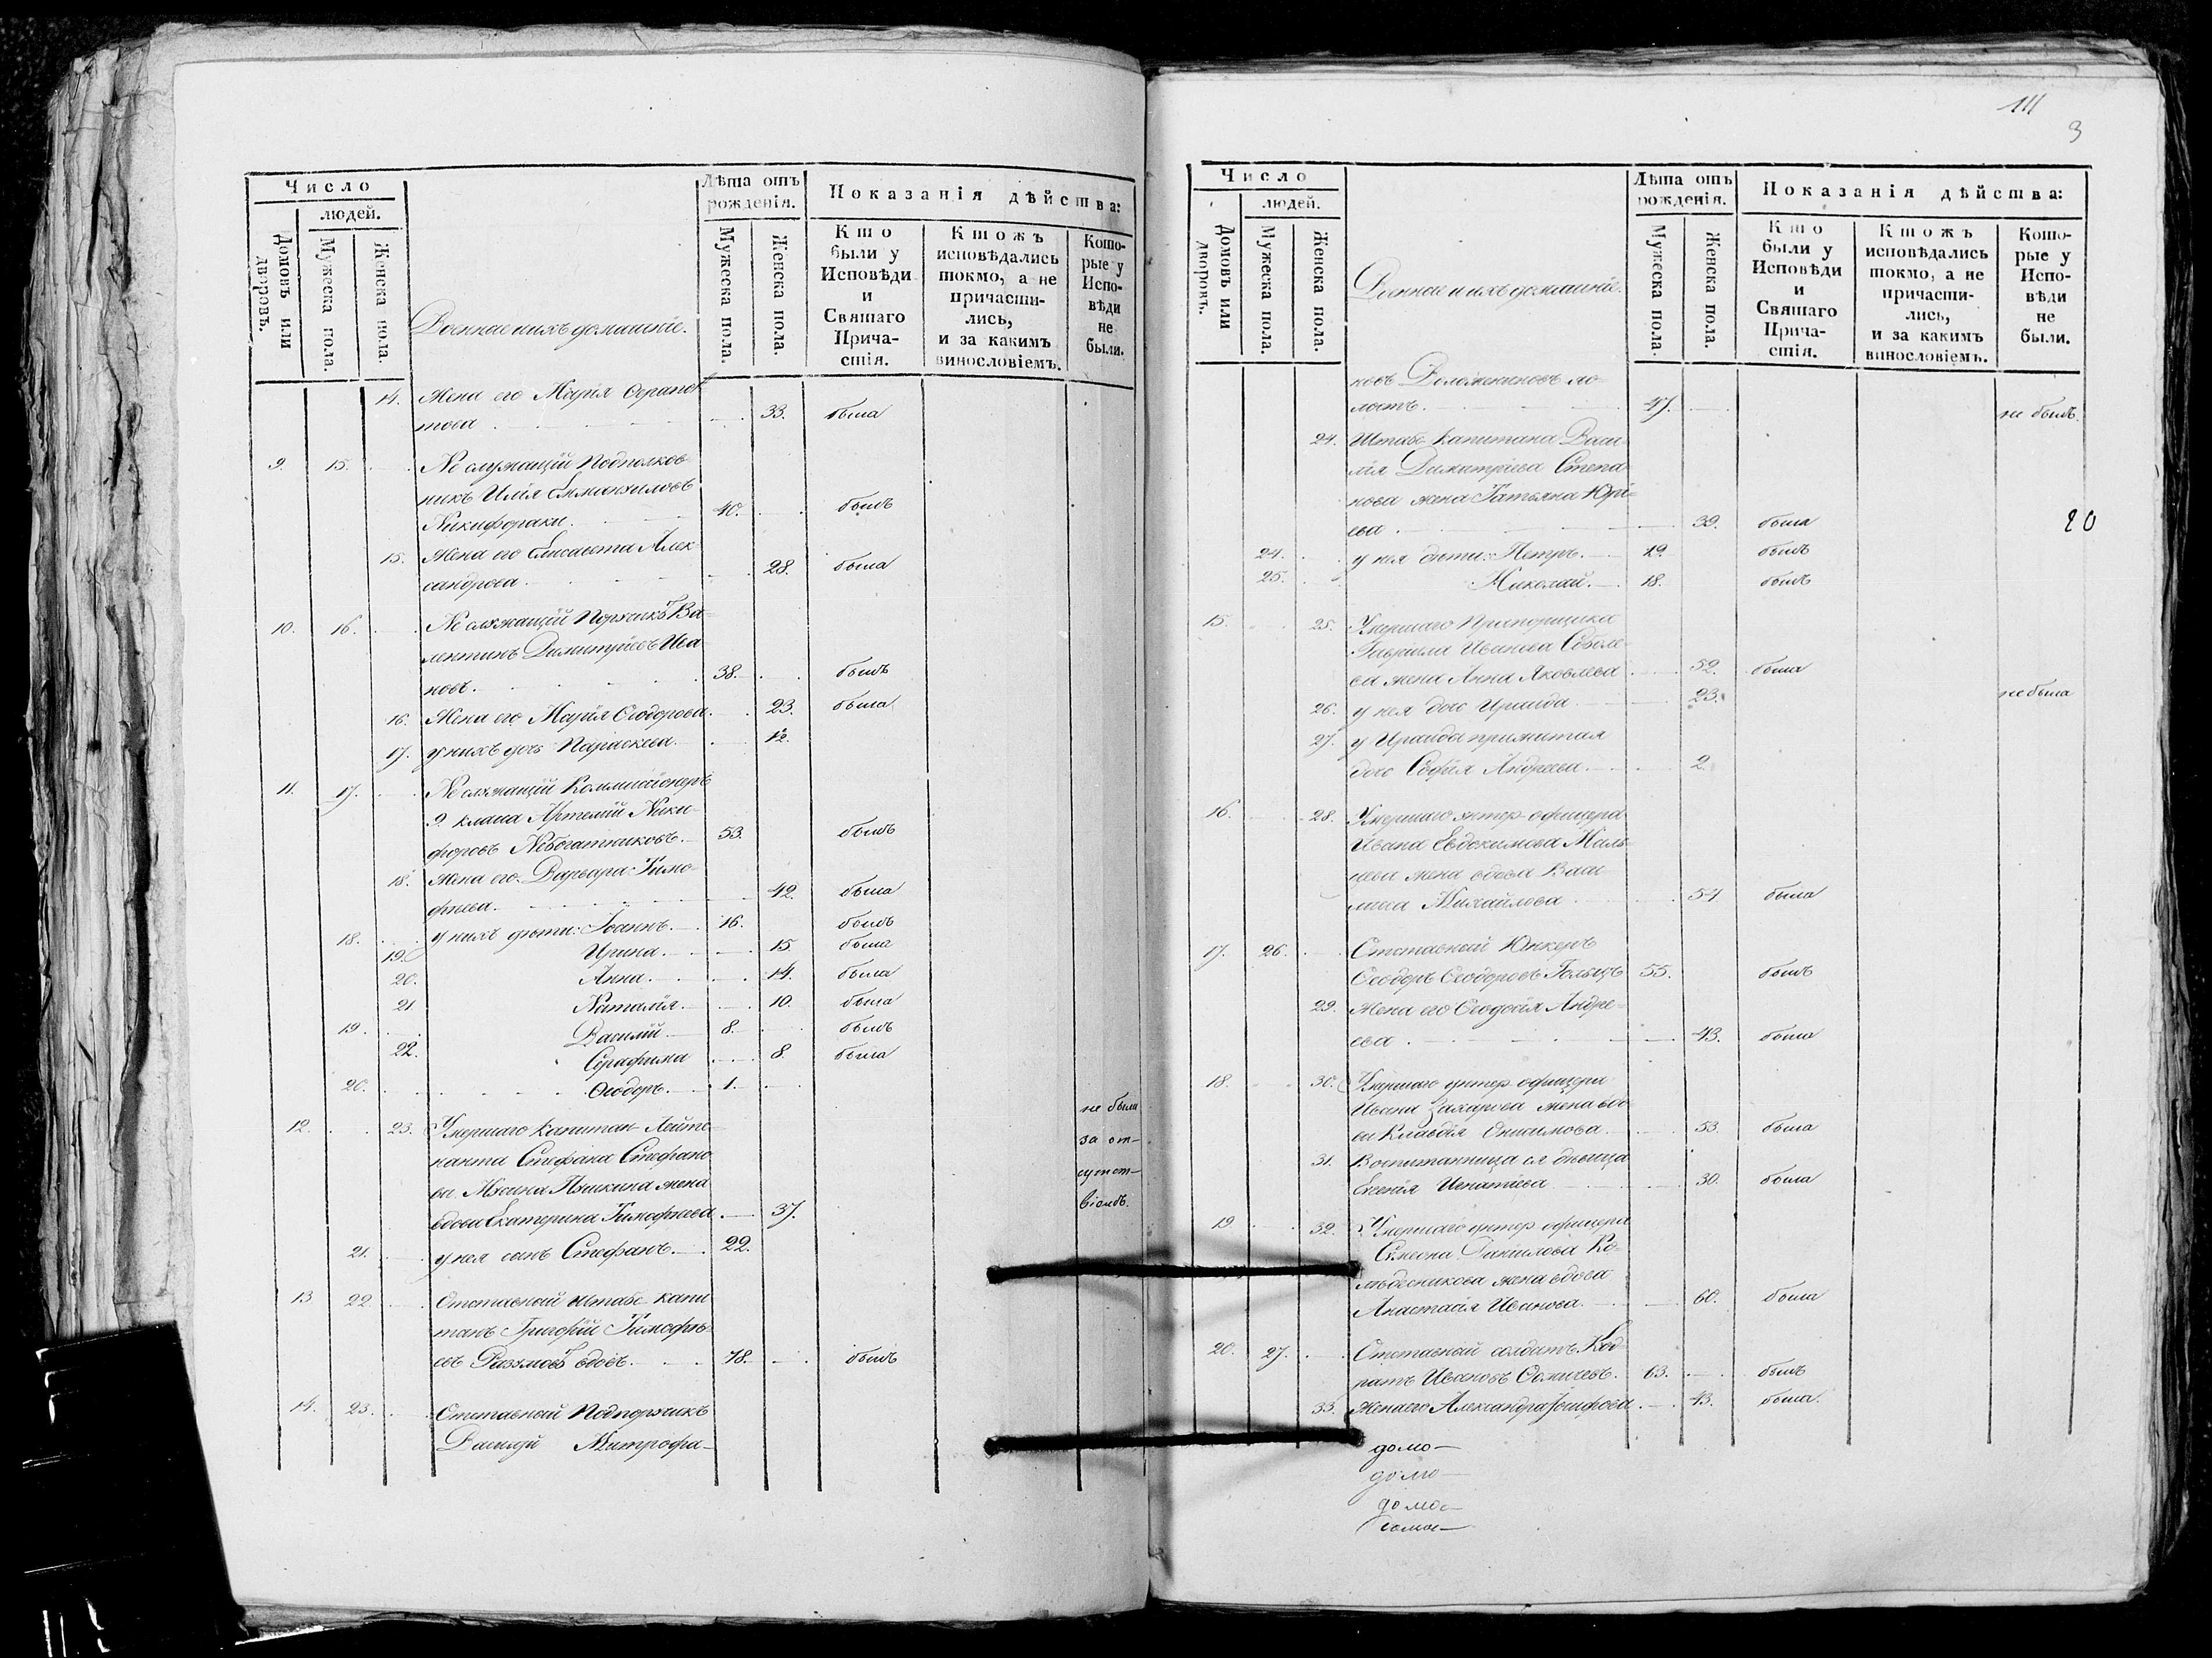 Число
людей.
Домовъ или дворовъ.
Мужеска пола.
Женска пола.
Военные и ихъ домашніе.
Лѣта отъ рожденія.
Мужеска пола.
Женска пола.
Показанія дѣйства:
Кто были у Исповѣди и Святаго Причастія.
Ктожъ исповѣдались токмо, а не причастились, и за какимъ винословіемъ.
Которые у Исповѣди не были.
14. Жена его Марія
това 33. была
9. 15. Не служащій Подполков-
никъ Илія Еммануиловъ
Никифораки. 40. былъ
15. Жена его Елисавета Алек-
сандрова 28. была
10. 16. Не служащій Поручикъ Ва-
лентинъ Димитріевъ Ива-
новъ. 38. былъ
16. Жена его Марія Ѳеодорова. 23. была
17. у нихъ дочь Параскева. 12.
11. 17. Не служащій Коммиссіонеръ
9 класа Артемій Ники-
форовъ Небогатниковъ. 53. былъ
18. Жена его Варвара Тимо-
феева. 42. была
18. у нихъ дѣти: Іоаннъ. 16. былъ
19. Ирина. 15 была
20. Анна. 14. была
21 Наталія. 10. была
19. Василій 8. былъ
22. Серафима 8. была
20. Ѳеодоръ. 1.
12. 23. Умершаго Капитан-Лейте- не были
нанта Стефана Стефано- за от-
ва Мусина Пушкина жена сутст-
вдова Екатерина Тимофеева 37. віемъ.
21. у нея сынъ Стефанъ. 22.
13 22 Отставный штабс-капи-
танъ Григорій Тимофѣ-
евъ Разумовъ вдовъ. 78. былъ
14. 23. Отставный Подпоручикъ
Василій Митрофа-
111
3
Число
людей.
Домовъ или дворовъ.
Мужеска пола.
Женска пола.
Военные и ихъ домашніе.
Лѣта отъ рожденія.
Мужеска пола.
Женска пола.
Показанія дѣйства:
Кто были у Исповѣди и Святаго Причастія.
Ктожъ исповѣдались токмо, а не причастились, и за какимъ винословіемъ.
Которые у Исповѣди не были.
новъ
47. не былъ.
24. Штабс-Капитана Васи-
лія Димитріева Степа-
нова жена Татьяна Юрі-
ева 39. была
20
24. у нея дѣти: Петръ. 19 былъ
25. Николай. 18. былъ
15. 25. Умершаго Прапорщика
Гавріила Иванова Соболе-
ва жена Анна Яковлева 52. была
26. у нея дочь Ираида 23. не была
27. у Ираиды прижитая
дочь Софія Андреева 2.
16. 28. Умершаго унтер-офицера
Ивана Евдокимова Маль-
цева жена вдова Васи-
лиса Михайлова 54 была
17. 26. Отставный Юнкеръ
Ѳеодоръ Ѳеодоровъ Гольцъ 55. былъ
29. Жена его Ѳеодосія Андре-
ева 43. была
18. 30. Умершаго унтер офицера
Ивана Захарова жена вдо-
ва Клавдія Онисимова 53. была
31. Воспитанница ея дѣвица
Евгенія Игнатіева 30. была
19 32. Умершаго унтер офицера
Сѵмеона Данилова Ко-
лбдесникова жена вдова
Анастасія Иванова. 60. была
20. 27. Отставный солдатъ Код-
ратъ Ивановъ 63. былъ
33. Жена его Александра Іосифова 43. была.
домо-
домо-
домо-
домо-